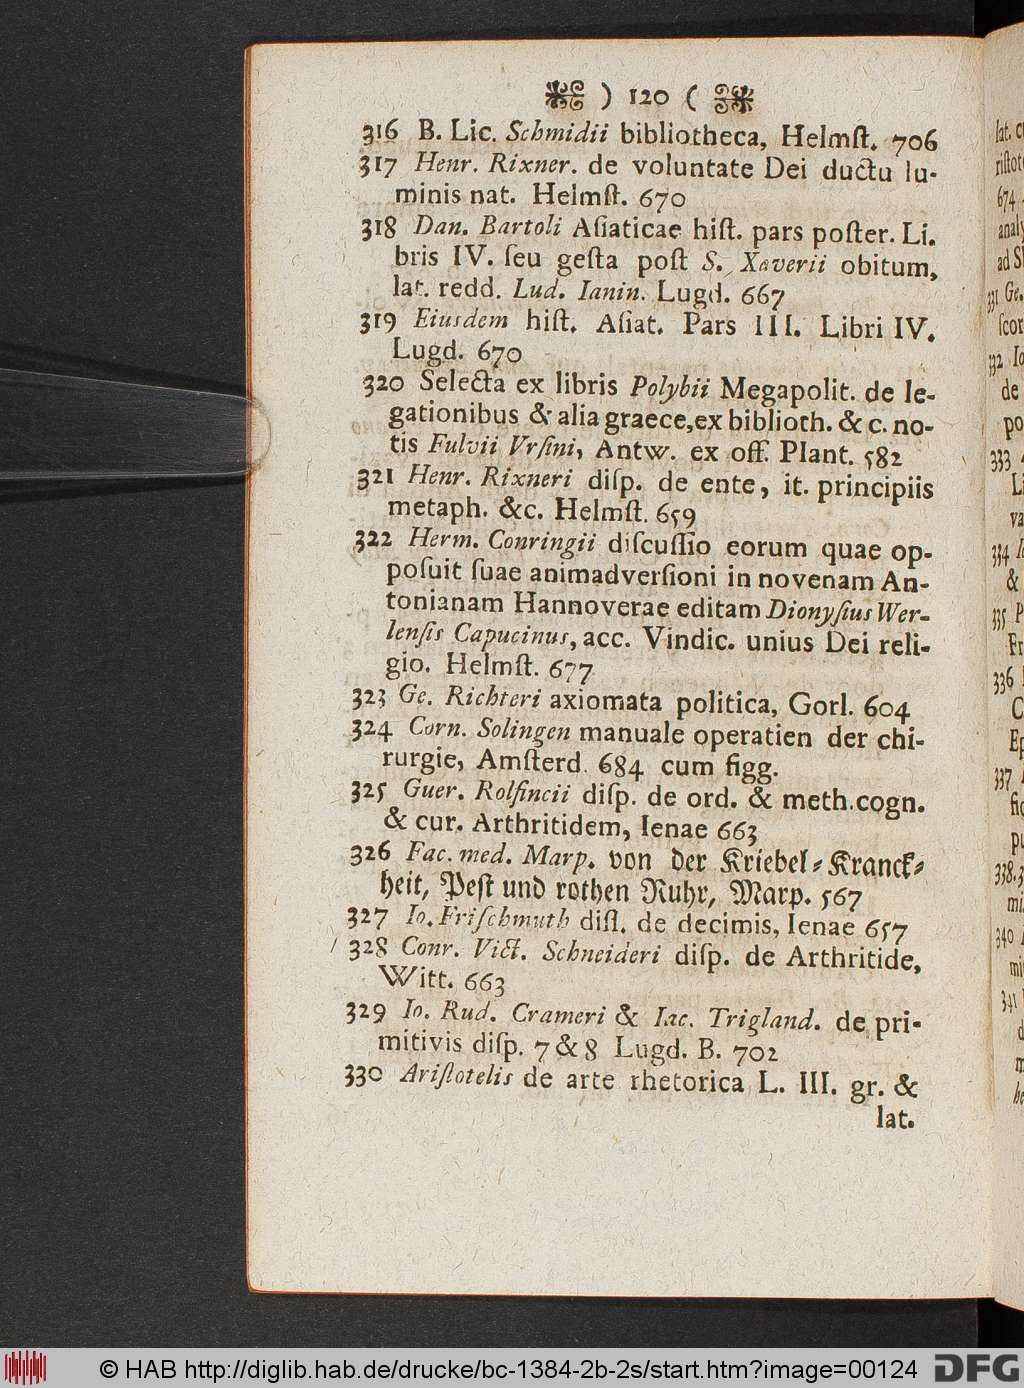 ) 120 (
316 B. Lic. Schmidii bibliotheca, Helmſt. 706
317 Henr. Rixner. de voluntate Dei ductu lu-
minis nat. Helmſt. 670
318 Dan. Bartoli Aſiaticae hiſt. pars poſter. Li.
bris IV. ſeu geſta poſt S. Xaverii obitum,
lat. redd. Lud. Ianin. Lugd. 667
319 Eiusdem hiſt. Aſiat. Pars III. Libri IV.
Lugd. 670
320 Selecta ex libris Polybii Megapolit. de le-
gationibus & alia graece, ex biblioth. & c. no-
tis Fulvii Vrſini, Antw. ex off. Plant. 582
321 Henr. Rixneri diſp. de ente, it. principiis
metaph. &c. Helmſt. 659
322 Herm. Conringii diſcuſſio eorum quae op-
poſuit ſuae animadverſioni in novenam An-
tonianam Hannoverae editam Dionyſius Wer-
lenſis Capucinus, acc. Vindic. unius Dei reli-
gio. Helmſt. 677
323 Ge. Richteri axiomata politica, Gorl. 604
324 Corn. Solingen manuale operatien der chi-
rurgie, Amſterd. 684 cum figg.
325 Guer. Rolfincii diſp. de ord. & meth. cogn.
& cur. Arthritidem, Ienae 663
326 Fac. med. Marp. von der Kriebel-Kranck-
heit, Peſt und rothen Ruhr, Marp. 567
327 Io. Friſchmuth diſſ. de decimis, Ienae 657
328 Conr. Vict. Schneideri diſp. de Arthritide,
Witt. 663
329 Io. Rud. Crameri & Iac. Trigland. de pri-
mitivis diſp. 7 & 8 Lugd. B. 702
330 Ariſtotelis de arte rhetorica L. III. gr. &
lat.
© HAB http://diglib.hab.de/drucke/bc-1384-2b-2s/start.htm?image=00124
DFG